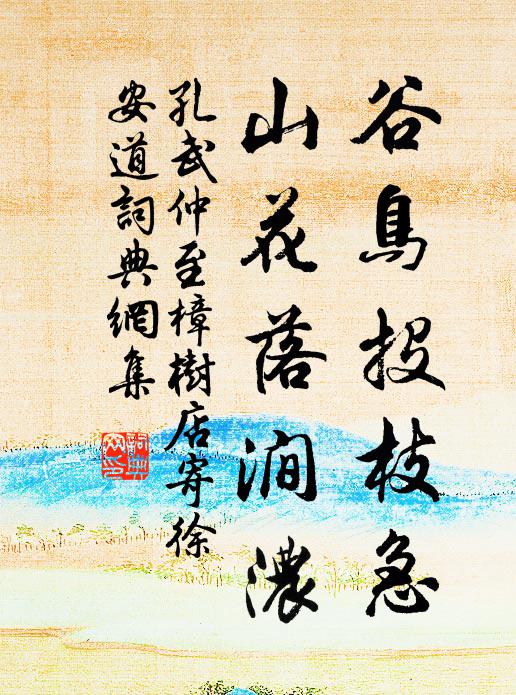 谷鳥投枝急
山花落澗濃
孔武仲至樟樹店寄徐
安道詞典網集